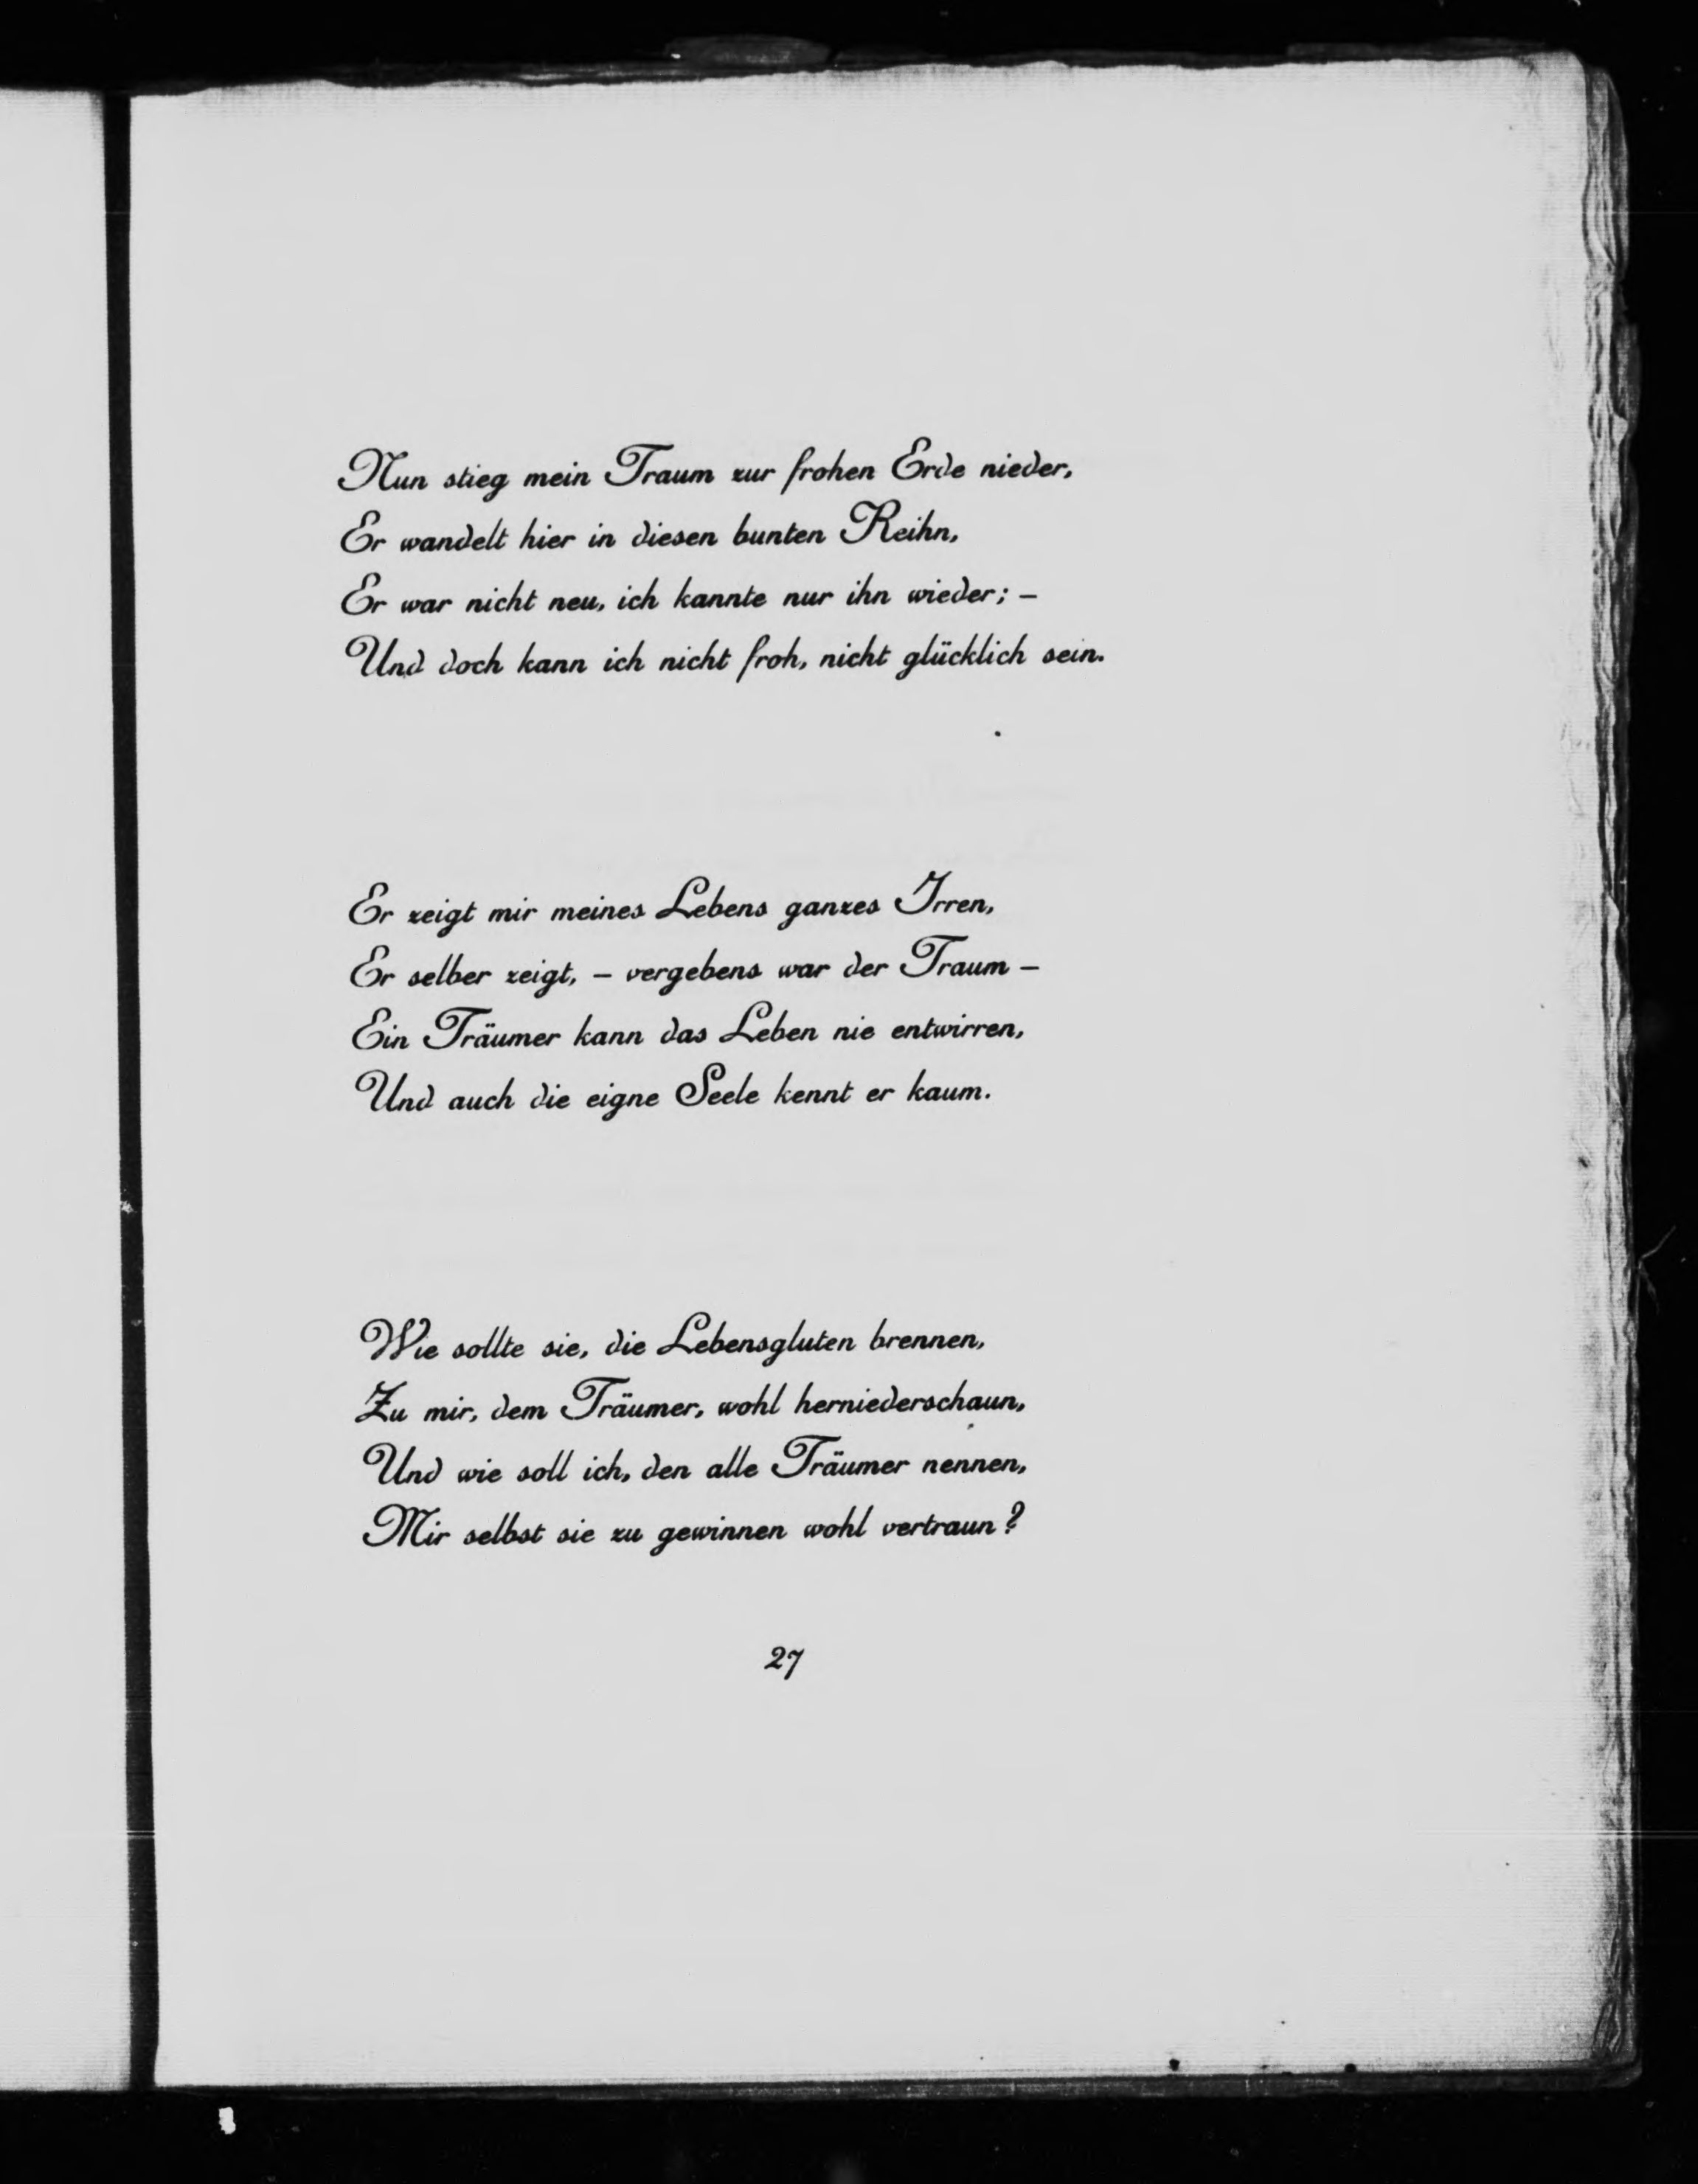 Nun stieg mein Traum zur frohen Erde nieder,
Er wandelt hier in diesen bunten Reihn,
Er war nicht neu, ich kannte nur ihn wieder; –
Und doch kann ich nicht froh, nicht glücklich sein.
Er zeigt mir meines Lebens ganzes Irren,
Er selber zeigt, – vergebens war der Traum –
Ein Träumer kann das Leben nie entwirren,
Und auch die eigne Seele kennt er kaum.
Wie sollte sie, die Lebensgluten brennen,
Zu mir, dem Träumer, wohl herniederschaun,
Und wie soll ich, den alle Träumer nennen,
Mir selbst sie zu gewinnen wohl vertraun?
27